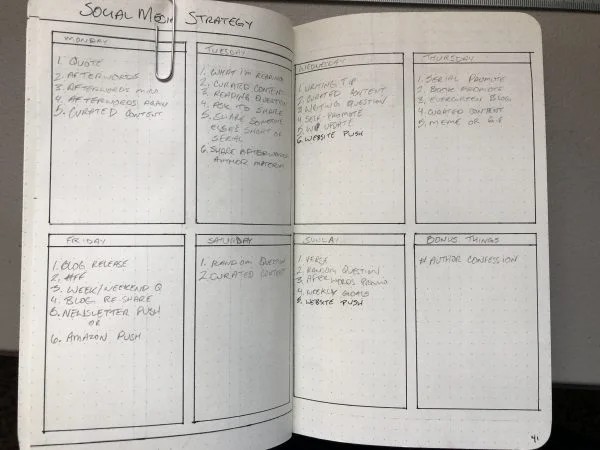 SOCIAL MEDIA STRATEGY
MONDAY
1. QUOTE
2. AFTERWORDS
3. AFTERWORDS MIND
4. AFTERWORDS AGAIN
5. CURATED CONTENT
TUESDAY
1. WHAT I'M READING
2. CURATED CONTENT
3. READING QUESTION
4. ASK TO SHARE
5. SHARE SOMEONE
ELSE'S SHORT OR
SERIAL
6. SHARE AFTERWORDS
AUTHOR MATERIAL
WEDNESDAY
1. WRITING TIP
2. CURATED CONTENT
3. WRITING QUESTION
4. SELF-PROMOTE
5. WIP UPDATE
6. WEBSITE PUSH
THURSDAY
1. SERIAL PROMOTE
2. BOOK PROMOTE
3. EVERGREEN BLOG
4. CURATED CONTENT
5. MEME OR GIF
FRIDAY
1. BLOG RELEASE
2. #FF
3. WEEK/WEEKEND Q
4. BLOG RE-SHARE
5. NEWSLETTER PUSH
OR
6. AMAZON PUSH
SATURDAY
1. RANDOM QUESTION
2. CURATED CONTENT
SUNDAY
1. VERSE
2. RANDOM QUESTION
3. AFTERWORDS PROMO
4. WEEKLY GOALS
5. WEBSITE PUSH
BONUS THINGS
# AUTHOR CONFESSION
41